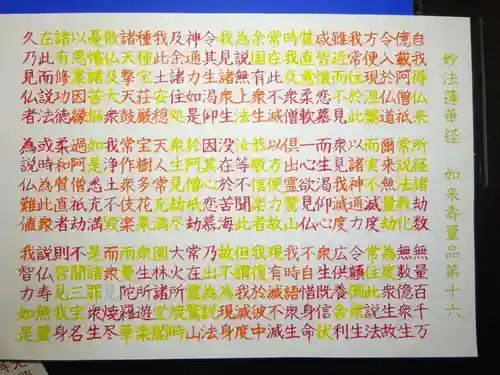 妙法蓮華経 如来寿量品第十六
自我得仏来 所経諸劫数 無量百千万
億載阿僧祇 常説法教化 無数億衆生
令入於仏道 爾来無量劫 為度衆生故
方便現涅槃 而実不滅度 常住此説法
我常住於此 以諸神通力 令顛倒衆生
雖近而不見 衆見我滅度 広供養舎利
咸皆懐恋慕 而生渇仰心 衆生既信伏
質直意柔軟 一心欲見仏 不自惜身命
時我及衆僧 倶出霊鷲山 我時語衆生
常在此不滅 以方便力故 現有滅不滅
余国有衆生 恭敬信楽者 我復於彼中
為説無上法 汝等不聞此 但謂我滅度
我見諸衆生 没在於苦海 故不為現身
令其生渇仰 因其心恋慕 乃出為説法
神通力如是 於阿僧祇劫 常在霊鷲山
及余諸住処 衆生見劫尽 大火所焼時
我此土安穏 天人常充満 園林諸堂閣
種種宝荘厳 宝樹多花菓 衆生所遊楽
諸天撃天鼓 常作衆伎楽 雨曼陀羅華
散仏及大衆 我浄土不毀 而衆見焼尽
憂怖諸苦悩 如是悉充満 是諸罪衆生
以悪業因縁 過阿僧祇劫 不聞三宝名
諸有修功徳 柔和質直者 則皆見我身
在此而説法 或時為此衆 説仏寿無量
久乃見仏者 為説仏難値 我智力如是